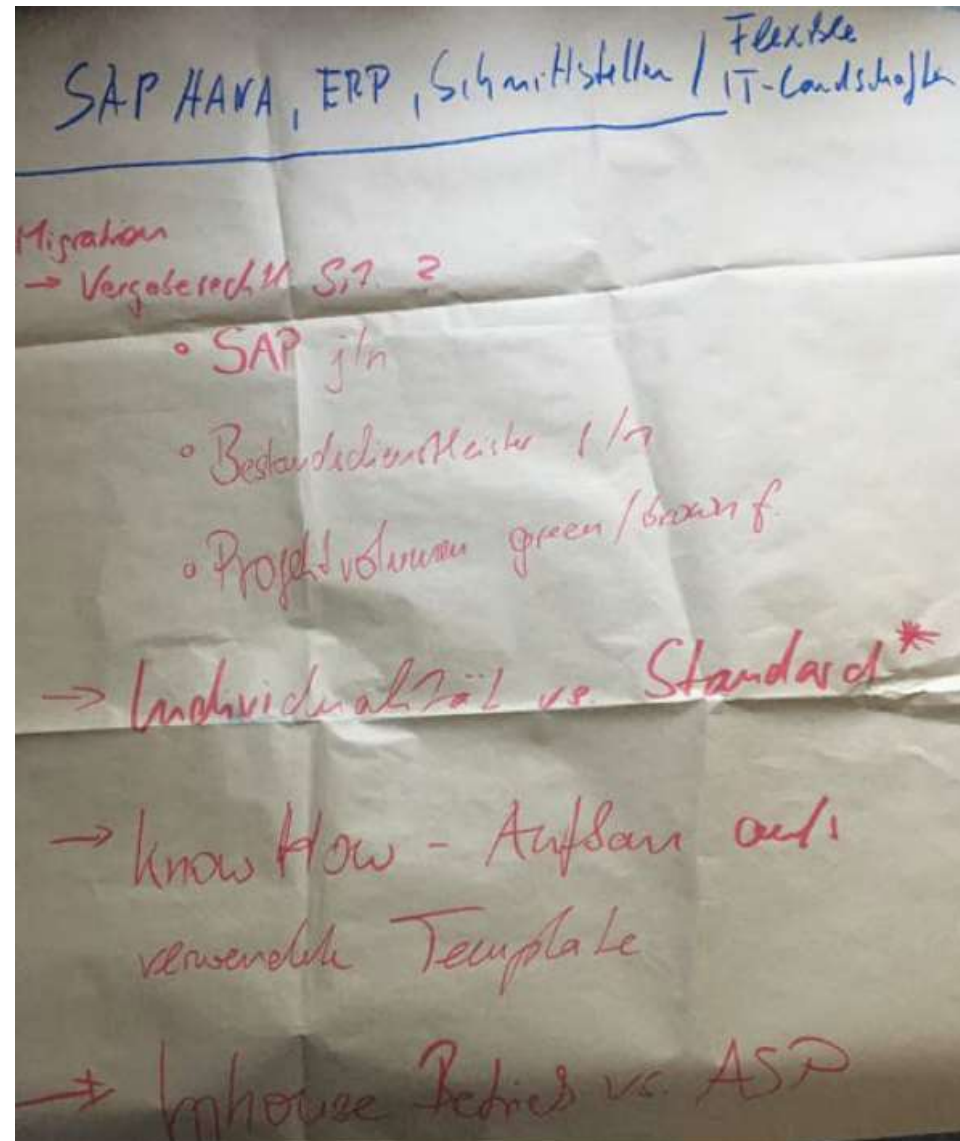 SAP HANA, ERP, Schnittstellen / Flexible
IT-Landschaften
Migration
→ Vergaberechtl. Sit. ?
° SAP j/n
° Bestandsdienstleister j/n
° Projektvolumen green/brown f.
→ Individualität vs. Standard*
→ Know How - Aufbau aufs
verwendete Template
→ Inhouse Betrieb vs. ASP